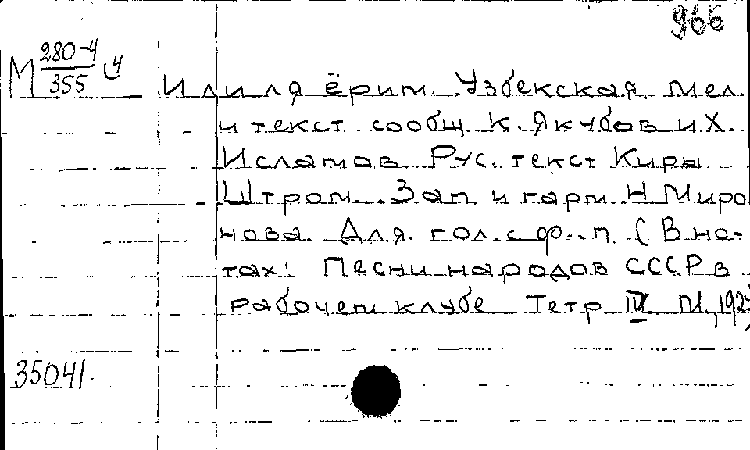 966
М 280-4/355 ч
Илиля ёрим. Узбекская мел.
и текст сообщ. К. Якубов и Х.
Исламов. Рус. текст Кира
Штром. Зап. и гарм. Н. Миро-
нова. Для гол. с ф.-п. (В но-
тах: Песни народов СССР в
рабочем клубе Тетр. IV. М., 192
35041.